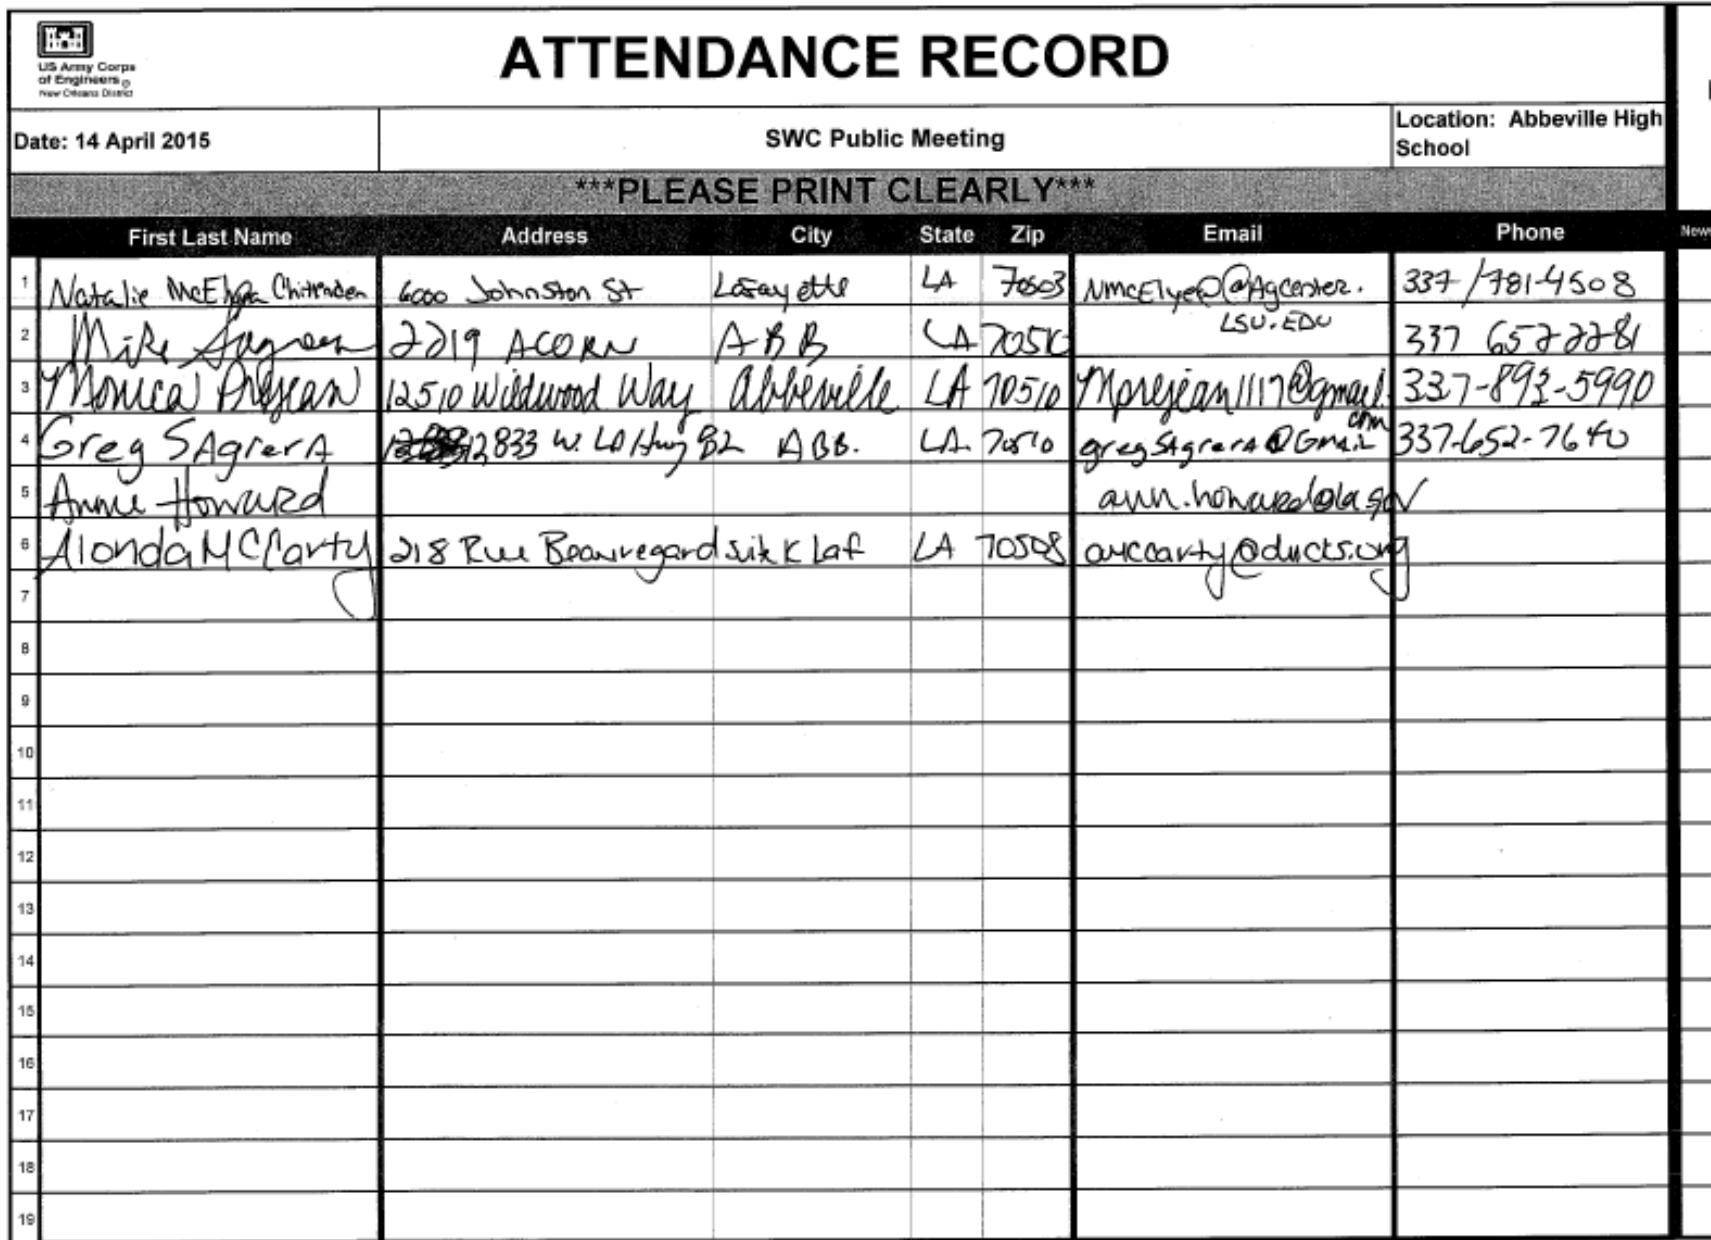 US Army Corps
of Engineers®
New Orleans District
ATTENDANCE RECORD
Date: 14 April 2015 SWC Public Meeting Location: Abbeville High School
***PLEASE PRINT CLEARLY***
First Last Name Address City State Zip Email Phone
1 Natalie McElyea Chittenden 6000 Johnston St Lafayette LA 70503 NMcElyea@Agcenter. LSU.EDU 337/781-4508
2 Mike 2219 ACORN ABB LA 70510 337 652 2281
3 Monica Prejean 12510 Wildwood Way Abbeville LA 70510 Mprejean1117@gmail.com 337-893-5990
4 Greg SAgrerA 12833 W. LA Hwy 82 ABB. LA. 70510 gregSAgrerA@Gmail 337-652-7640
5 Anne Howard ann.howard@la.gov
6 Alonda McCarty 218 Rue Beauregard Suite K Laf LA 70508 amccarty@ducts.org
7
8
9
10
11
12
13
14
15
16
17
18
19